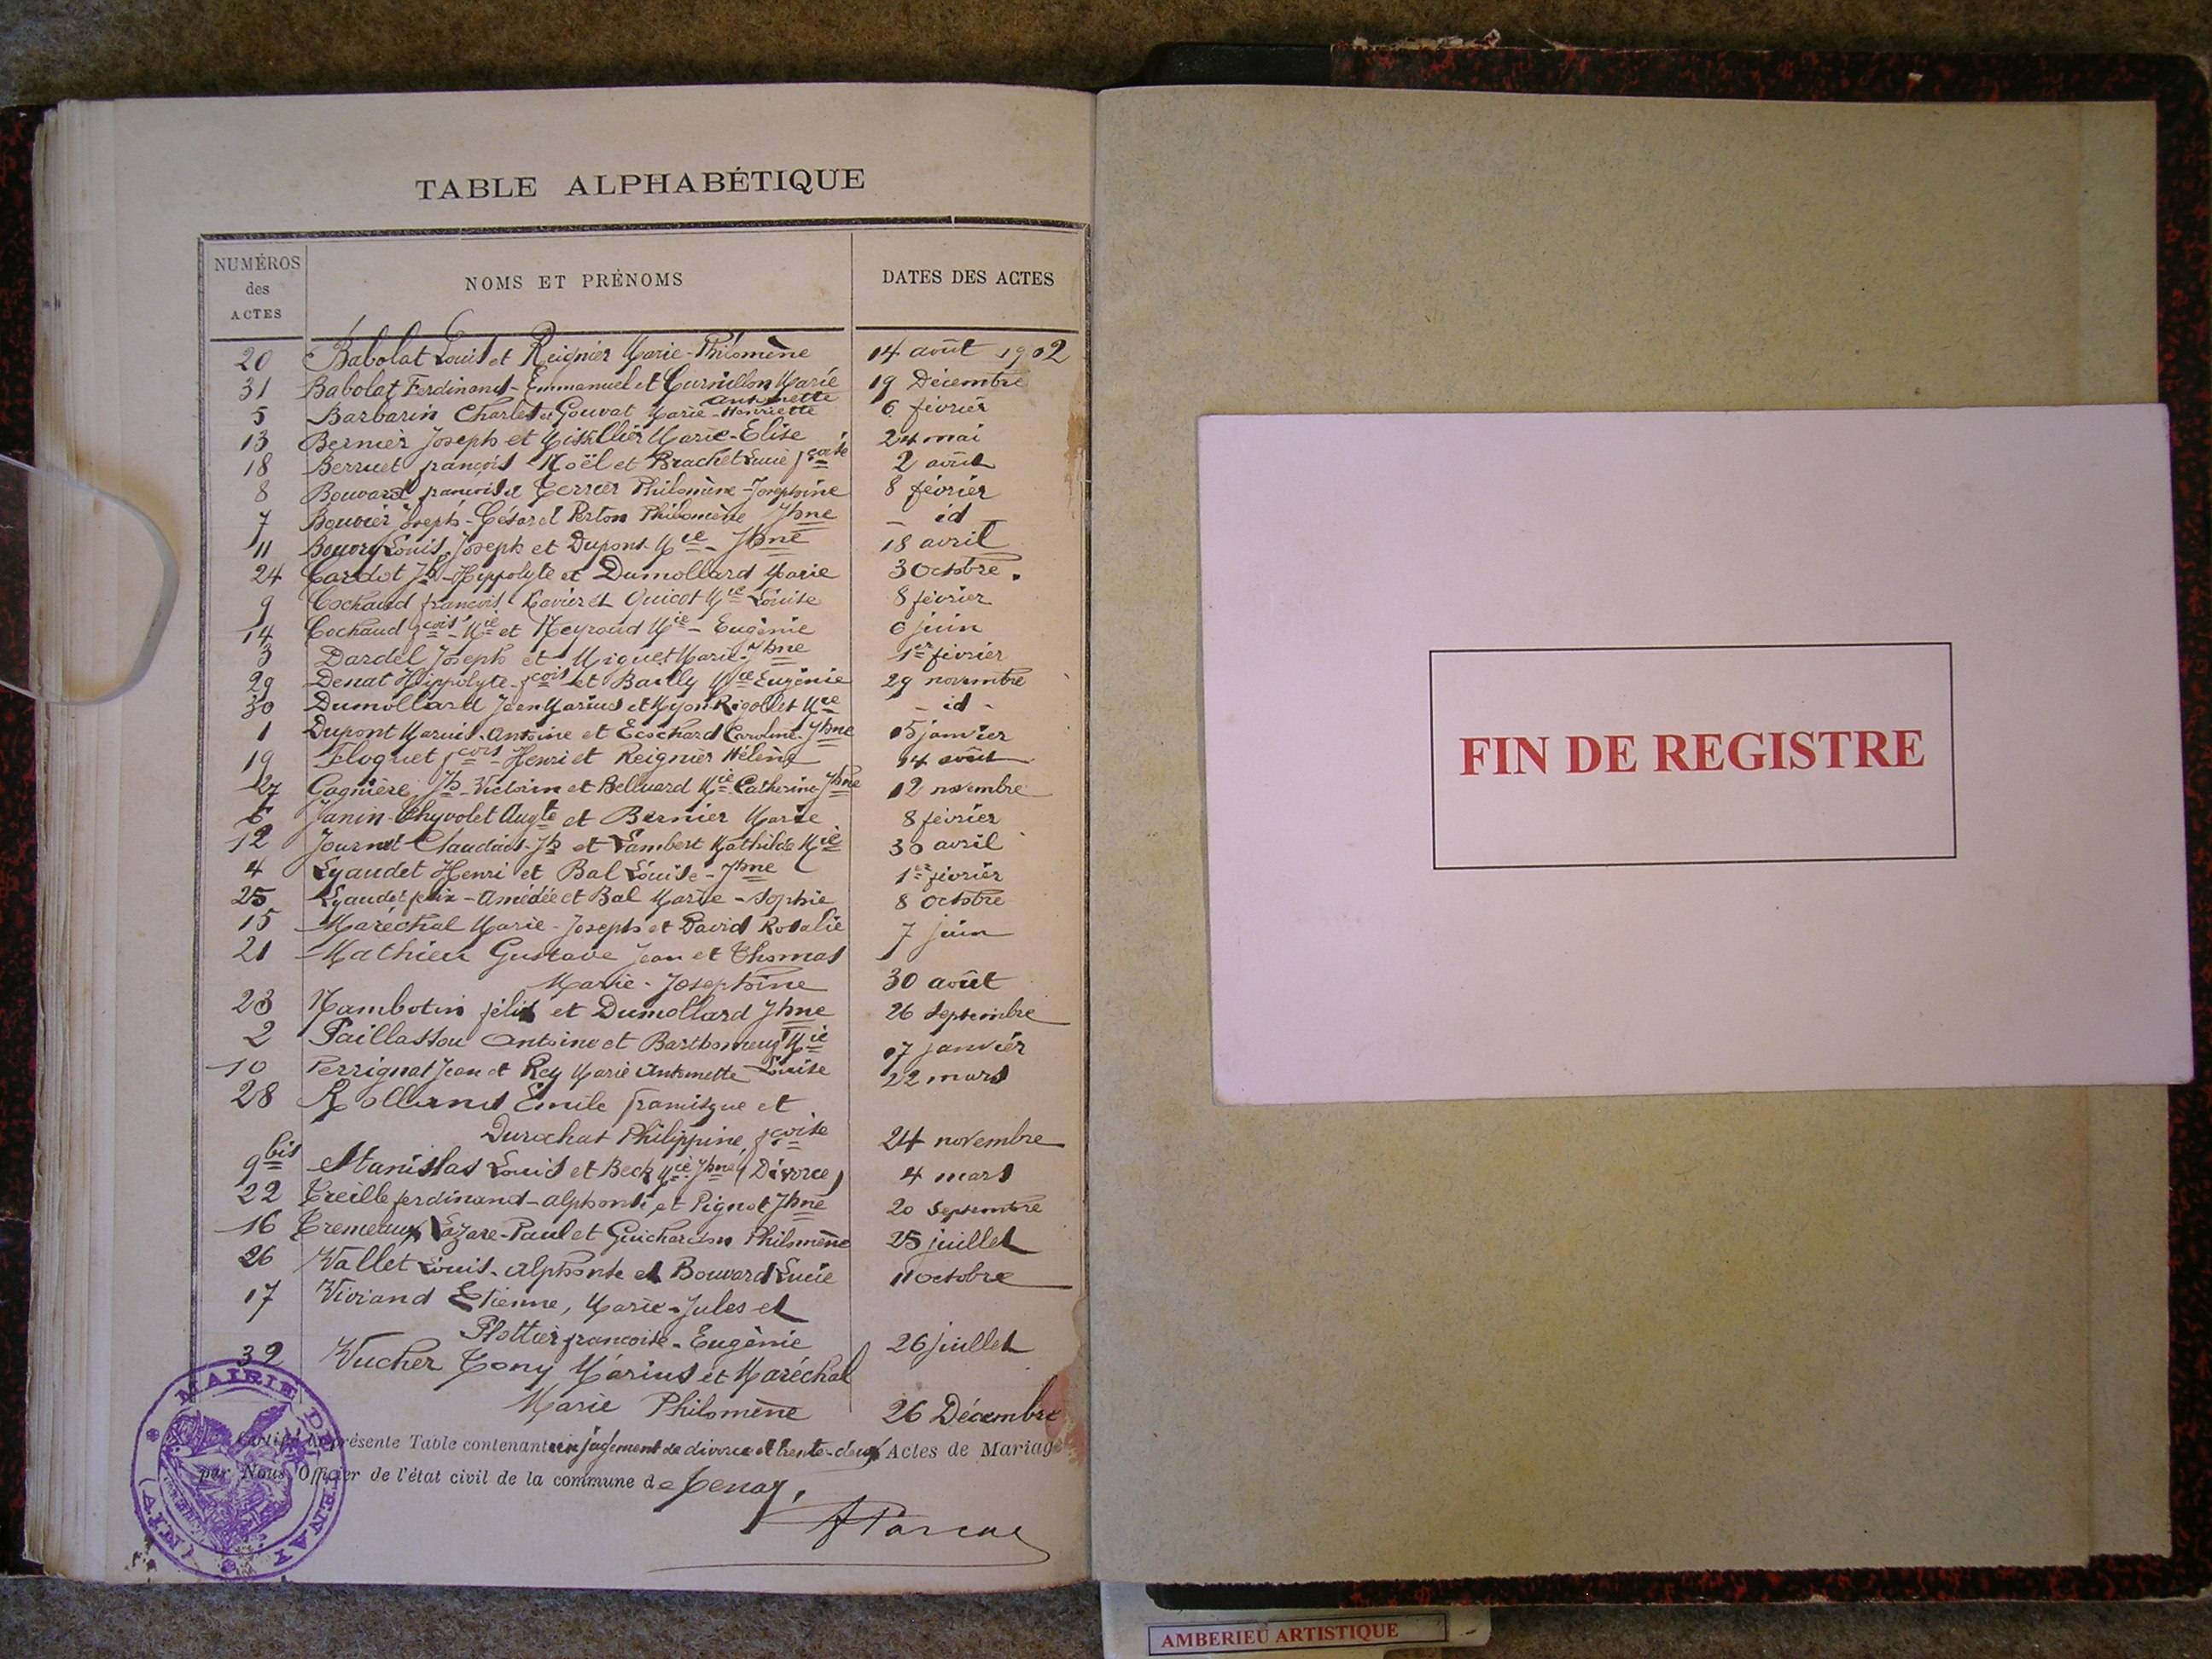 TABLE ALPHABÉTIQUE
NUMÉROS des ACTES NOMS ET PRÉNOMS DATES DES ACTES
20 Babolat Louis et Reignier Marie-Philomène 14 août 1902
31 Babolat Ferdinand-Emmanuel et Curnillon Marie Antonette 19 Décembre
5 Barbarin Charles et Gouvat Marie-Henriette 6 février
13 Bernier Joseph et Marie-Elise 24 mai
18 Berruet françois Noël et Brachet Lucie fçoise 2 août
8 Bouvard françois et Terrier Philomène-Joséphine 8 février
7 Bouvier Joseph-César et Perton Philomène Jhne _ id _
11 Bouvry Louis, Joseph et Dupont Mie-Jhne 18 avril
24 Cardot Jh-Hippolyte et Dumollard Marie 3 Octobre.
9 Cochaud françois Xavier et Guicot Mie Louise 8 février
14 Cochaud fçois-Mie et Neyroud Mie-Eugénie 6 juin
3 Dardel Joseph et Miguet Marie-Jhne 1er février
29 Denat Hippolyte-fçois et Bailly Mie Eugénie 29 novembre
30 Dumollard Jean Marius et Myon-Rigollet Mie - id -
1 Dupont Marius-Antoine et Ecochard Caroline-Jhne 05 janvier
19 Floquet fçois Henri et Reignier Hélène 14 août
27 Gagnière, Jh-Victorin et Belluard Mie Catherine-Jhne 12 novembre
6 Janin-Thyvolet Augte et Bernier Marie 8 février
12 Journet Claudius-Jh et Lambert Mathilde Mie 30 avril
4 Lyaudet Henri et Bal Louise-Jhne 1er février
25 Lyaudet felix-Amédée et Bal Marie-Sophie 8 Octobre
15 Maréchal Marie-Joseph et David Rosalie 7 juin
21 Mathieu Gustave Jean et Thomas
Marie-Joséphine 30 août
23 Nambotin félix et Dumollard Jhne 26 Septembre
2 Paillasson Antoine et Mie 07 janvier
10 Perrignat Jean et Rey Marie Antonette Louise 22 mars
28 Rolland Emile francisque et
Durochat Philippine fçoise 24 novembre
9bis Stanislas Louis et Beck Mie Jhne (Divorce) 4 mars
22 Treille ferdinand-alphonse et Pignot Jhne 20 Septembre
16 Tremeaux Lazare-Paul et Guichardon Philomène 25 juillet
26 Vallet Louis-Alphonse et Bouvard Lucie 11 octobre
17 Viviand Etienne, Marie-Jules et
Plottier francoise-Eugénie 26 juillet
32 Vucher Tony Marius et Maréchal
Marie Philomène 26 Décembre
Certifié la présente Table contenant un jugement de divorce et trente-deux Actes de Mariage
par Nous Officier de l'état civil de la commune de Tenay.
MAIRIE DE TENAY (AIN)
FIN DE REGISTRE
AMBERIEU ARTISTIQUE